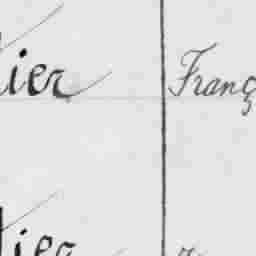 tier Franç
tier